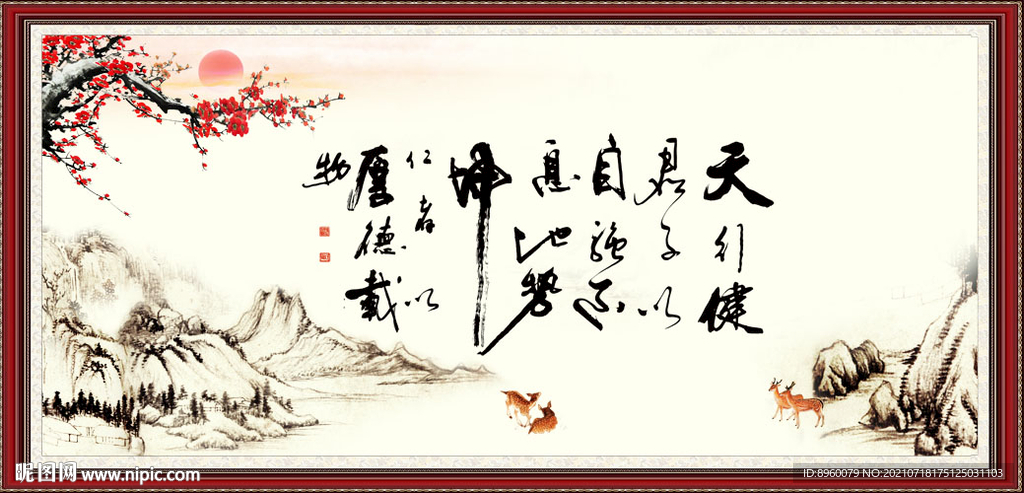 天行健
君子以
自強不
息地勢
坤
仁者以
厚德載
物
昵图网 www.nipic.com
ID:8960079 NO:20210718175125031103